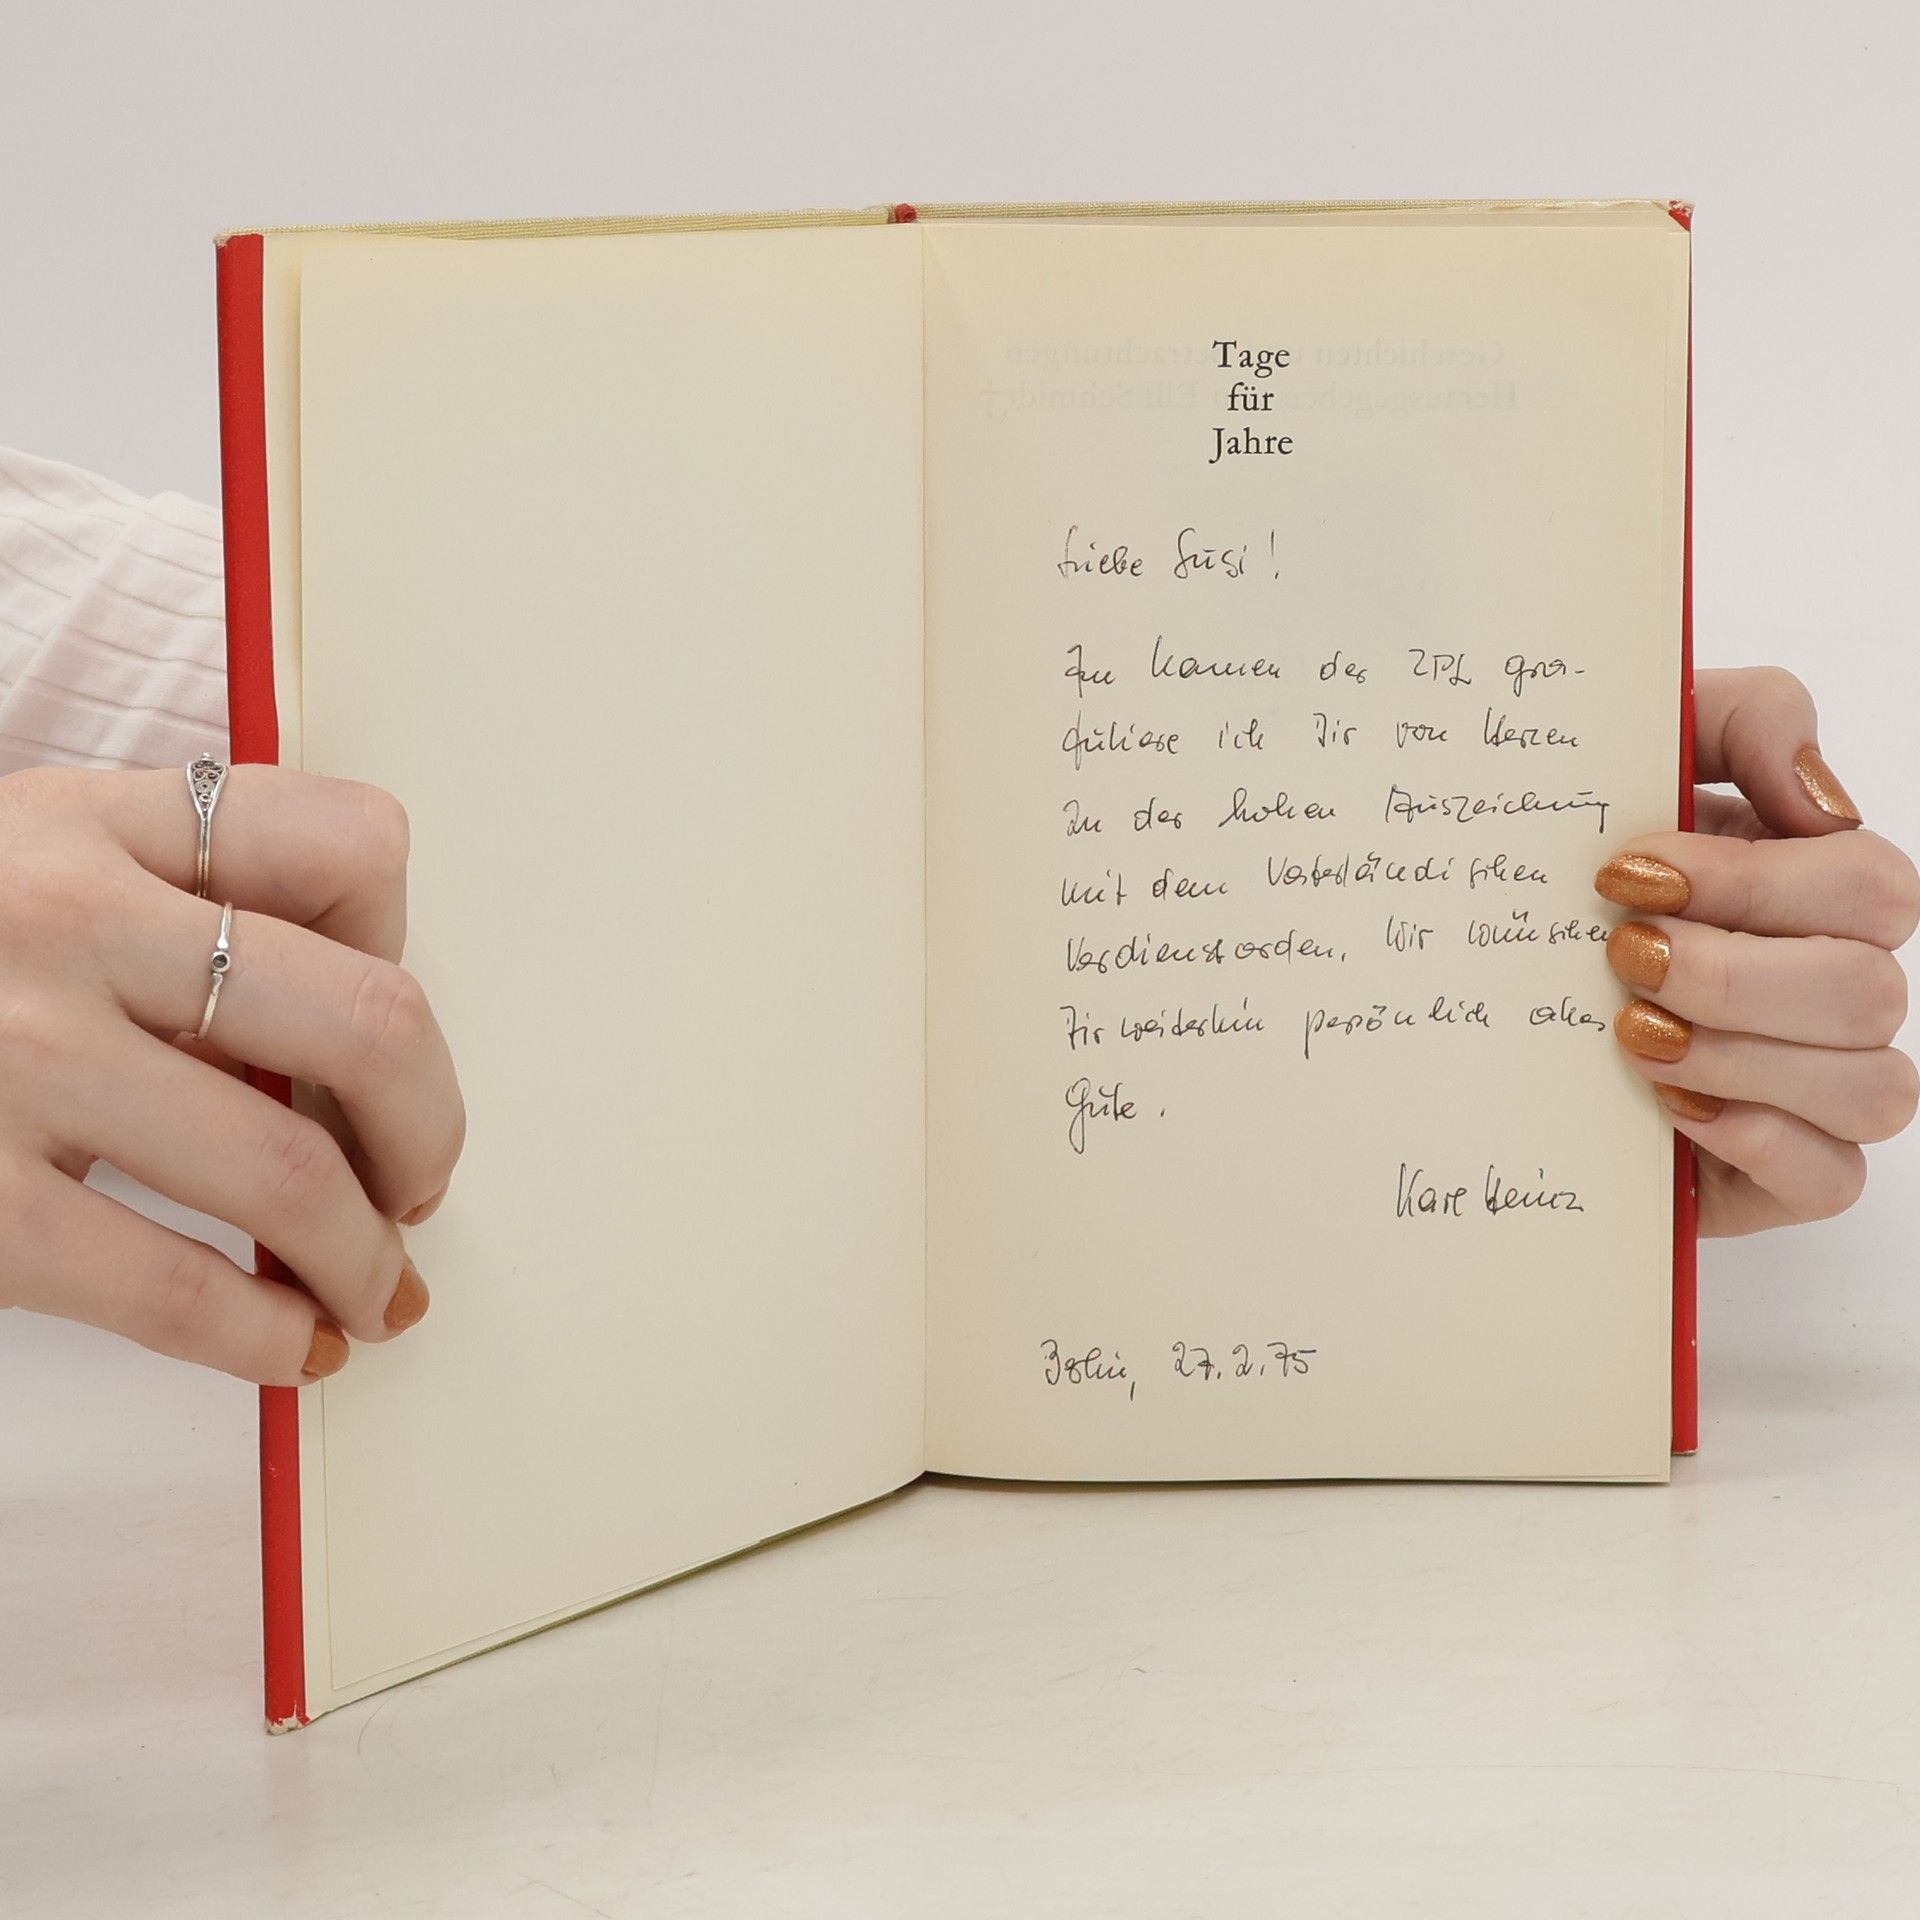 Tage
für
Jahre
Liebe Susi!
Im Namen der ZPL gra-
tuliere ich Dir von Herzen
zu der hohen Auszeichnung
mit dem Vaterländischen
Verdienstorden. Wir wünschen
Dir weiterhin persönlich alles
Gute.
Karl Heinz
Berlin, 27.2.75